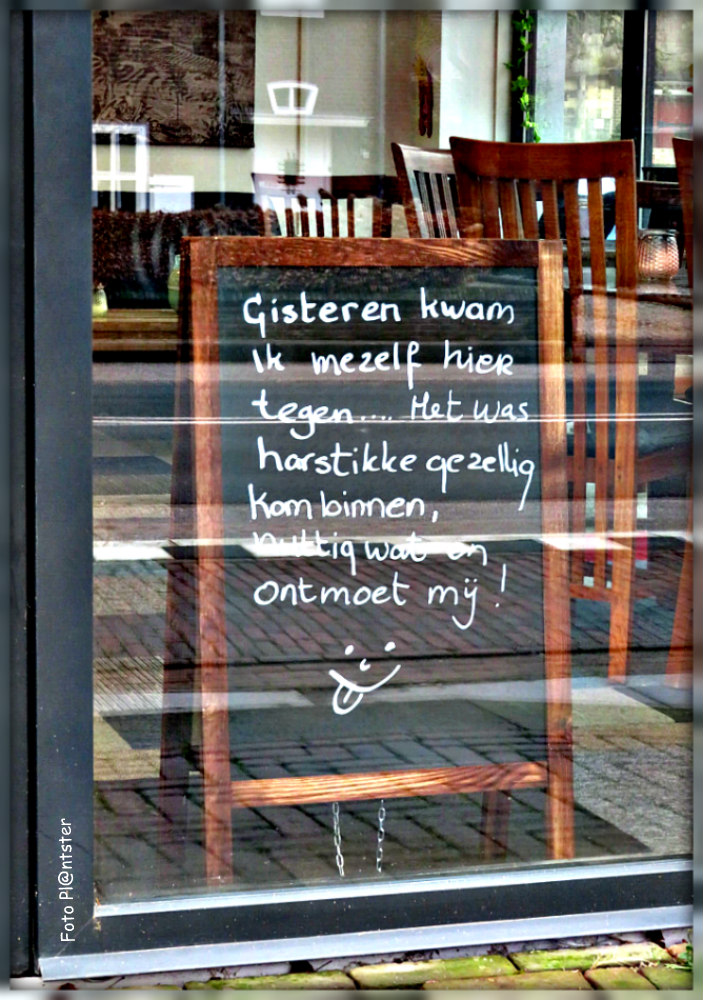 Gisteren kwam
Ik mezelf hier
tegen.... Het was
harstikke gezellig
kom binnen,
nuttig wat en
ontmoet mij!
Foto Pl@ntster